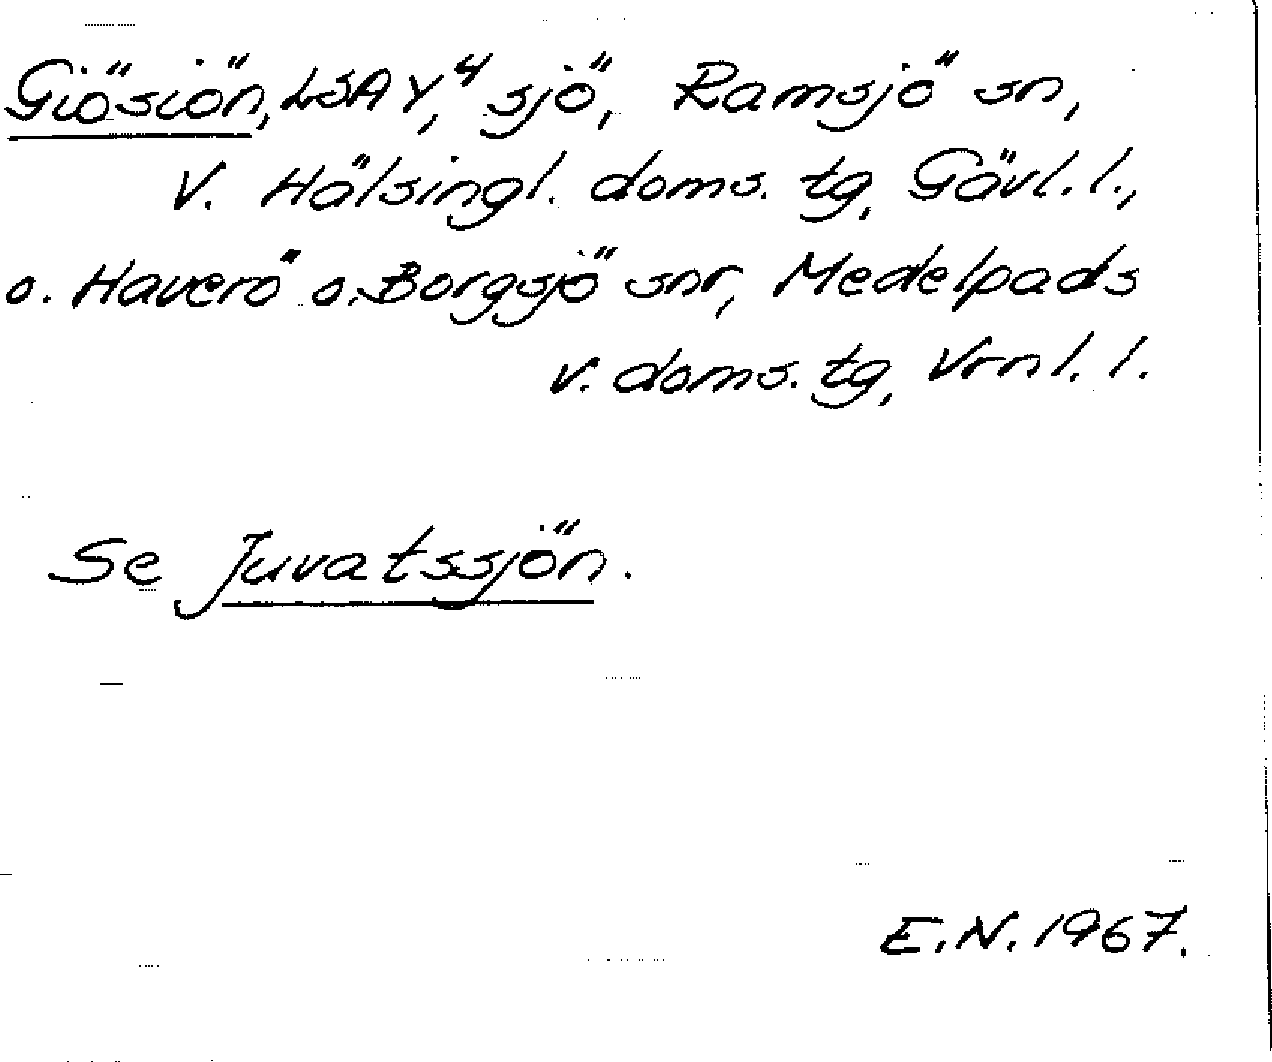 Giösiön, LSA Y, 4 sjö, Ramsjö sn,
V. Hälsingl. doms. tg, Gävl. l.,
o. Haverö o. Borgsjö snr, Medelpads
v. doms. tg, Vrnl. l.
Se Juvatssjön.
E.N. 1967.